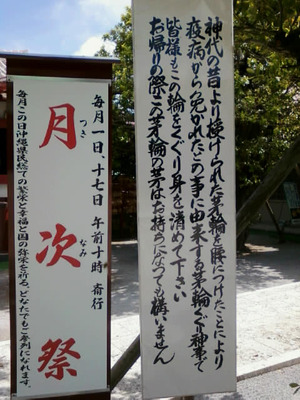 神代の昔より授けられた茅輪を腰につけたことにより
疫病から免かれたこの事に由来する茅輪くぐり神事で
皆様もこの輪をくぐり身を清めて下さい
お帰りの際この茅輪の茅はお持ちになっても構いません
毎月一日、十七日 午前十時 斎行
月次祭
つき なみ
毎月この日沖縄県民総ての繁栄と幸福と国の弥栄を祈る。どなたでもご参列になれます。